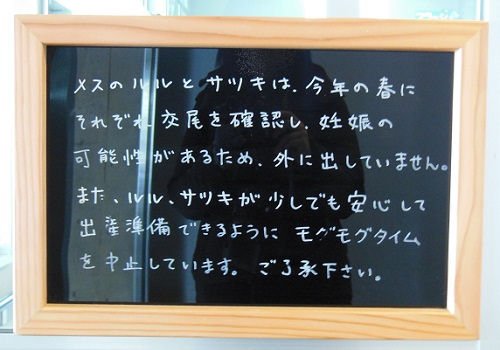 メスのルルとサツキは、今年の春に
それぞれ交尾を確認し、妊娠の
可能性があるため、外に出していません。
また、ルル、サツキが少しでも安心して
出産準備できるように モグモグタイム
を中止しています。ご了承下さい。